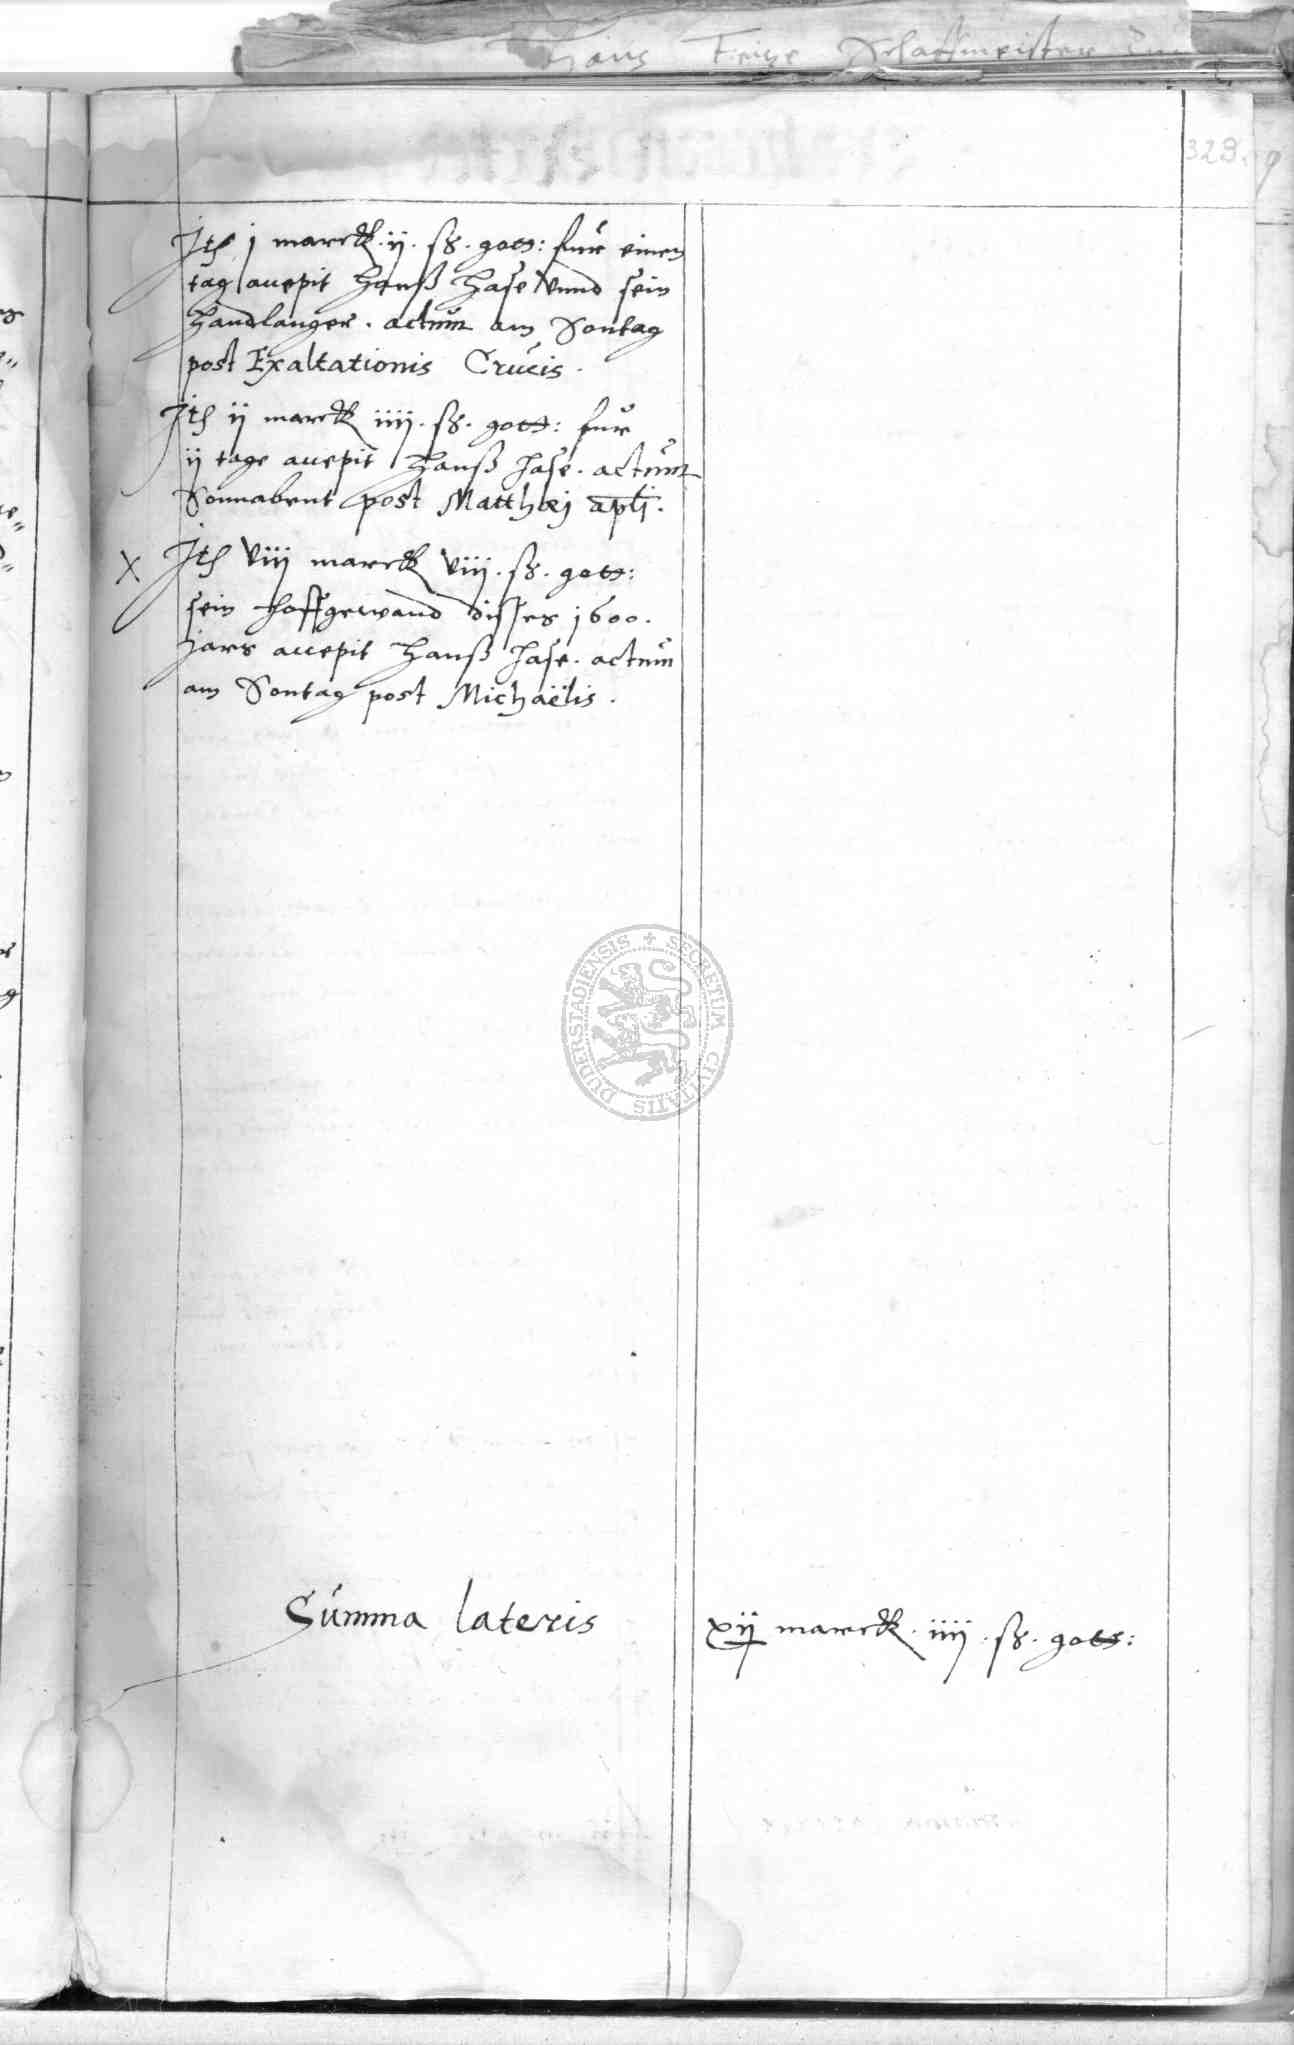 Hans Feige
329.
Itē j marck ij. ß. gott: fur einen
tag accepit Hanß Hase vnnd sein
Handlanger. actum am Sontag
post Exaltationis Crucis.
Itē ij marck iiij. ß. gott: fur
ij tage accepit Hanß Hase. actum
Sonnabent post Matthæj apłi.
X Itē viij marck viij. ß. gott:
sein hoffgewand disses 1600.
jars accepit Hanß Hase. actum
am Sontag post Michaëlis.
SECRETUM CIVITATIS DUDERSTADIENSIS
Summa lateris xij marck. iiij. ß. gott: